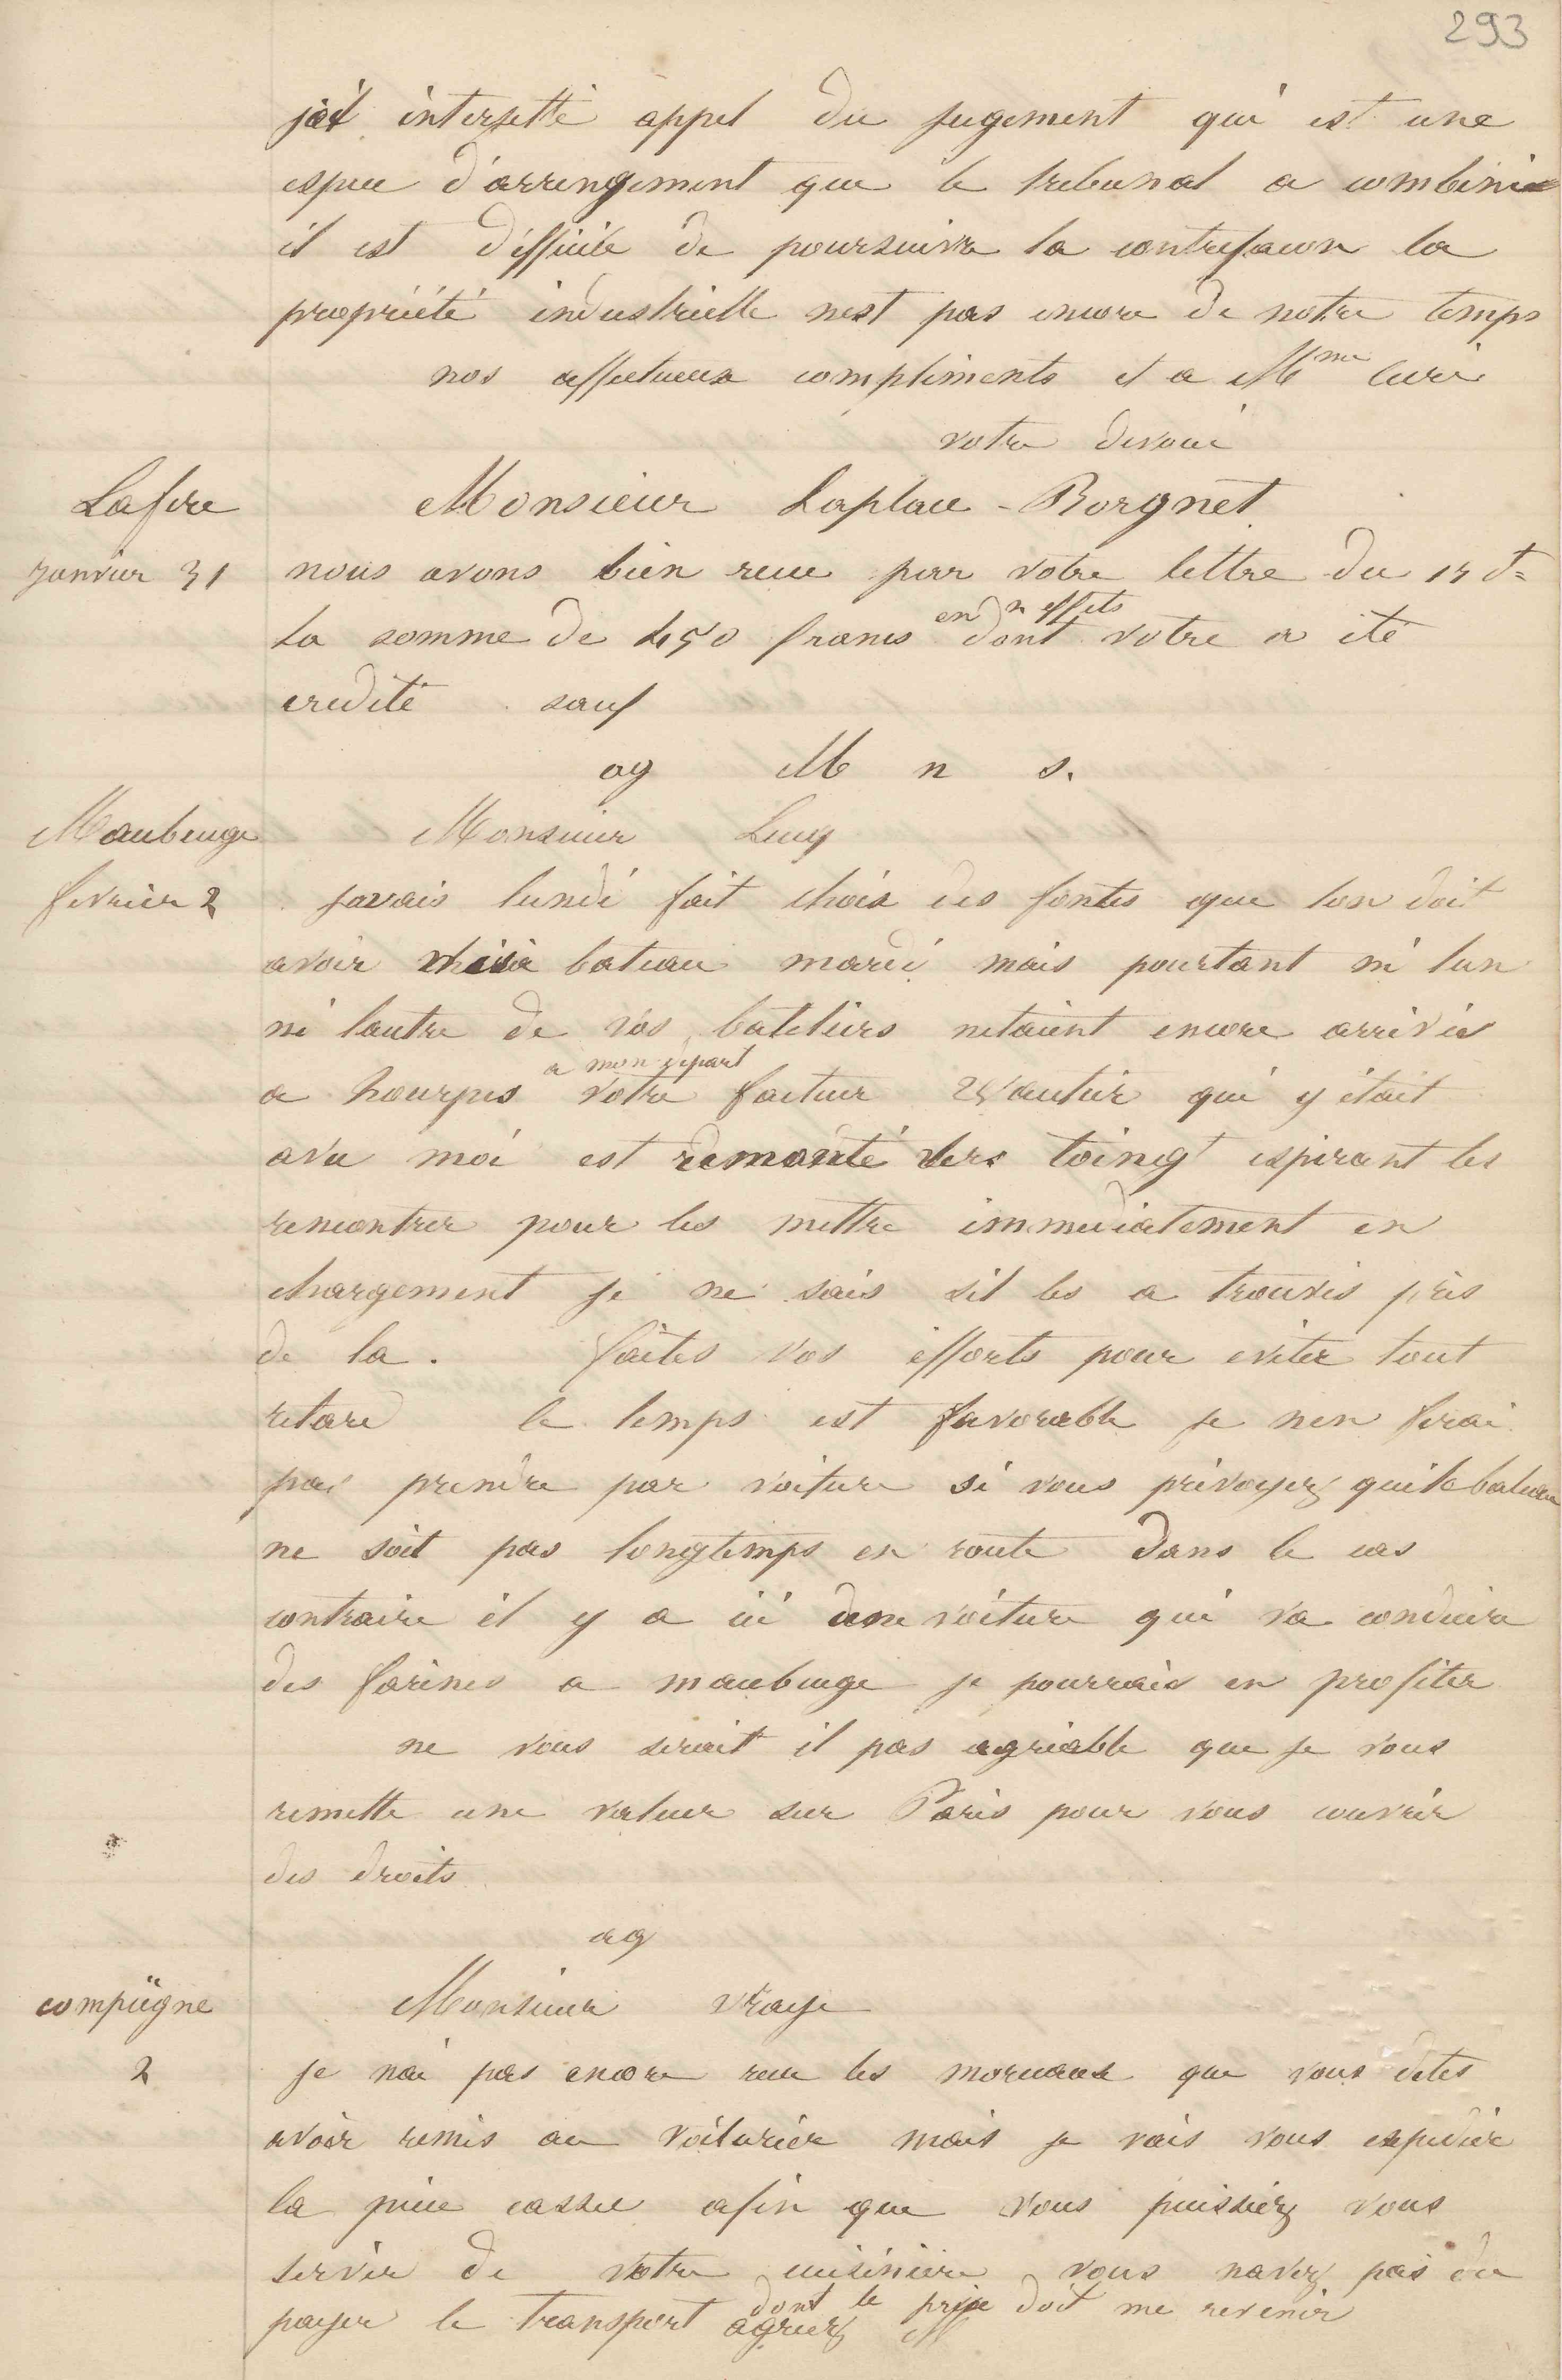 293
jai interjetté appel du jugement qui est une
espece d'arrengement que le tribunal a combiné
il est difficile de poursuivre la contrefacon la
propriété industrielle nest pas encore de notre temps
nos affectueux compliments et a Mme
votre devoué
Lafere Monsieur Laplace-Borgnet
janvier 31 nous avons bien recu par votre lettre du 15 dt
en n effets
la somme de 450 francs dont votre a été
credité sauf
ag M n s.
Maubeuge Monsieur Lucq
fevrier 2 javais lundi fait choix des fontes que lon doit
avoir bateau mardi mais pourtant ni lun
ni lautre de vos bateliers netaient encore arrivés
a mon depart
a hourpes votre facteur Wautier qui y était
avec moi est remonté vers esperant les
rencontrer pour les mettre immediatement en
chargement je ne sais sil les a trouvés près
de la. faites vos efforts pour eviter tout
retard le temps est favorable je nen ferai
pas prendre par voiture si vous prévoyez que le bateau
ne soit pas longtemps en route dans le cas
contraire il y a ici une voiture qui va conduire
des farines a maubeuge je pourrais en profiter
ne vous serait il pas agréable que je vous
remette une valeur sur Paris pour vous couvrir
des droits
ag
compiègne Monsieur vraye
2 je nai pas encore recu les morceaux que vous dites
avoir remis au voiturier mais je vais vous expedier
la piece cassee afin que vous puissiez vous
servir de votre cuisiniere vous navez pas du
dont le prix doit me revenir
payer le transport agreez M